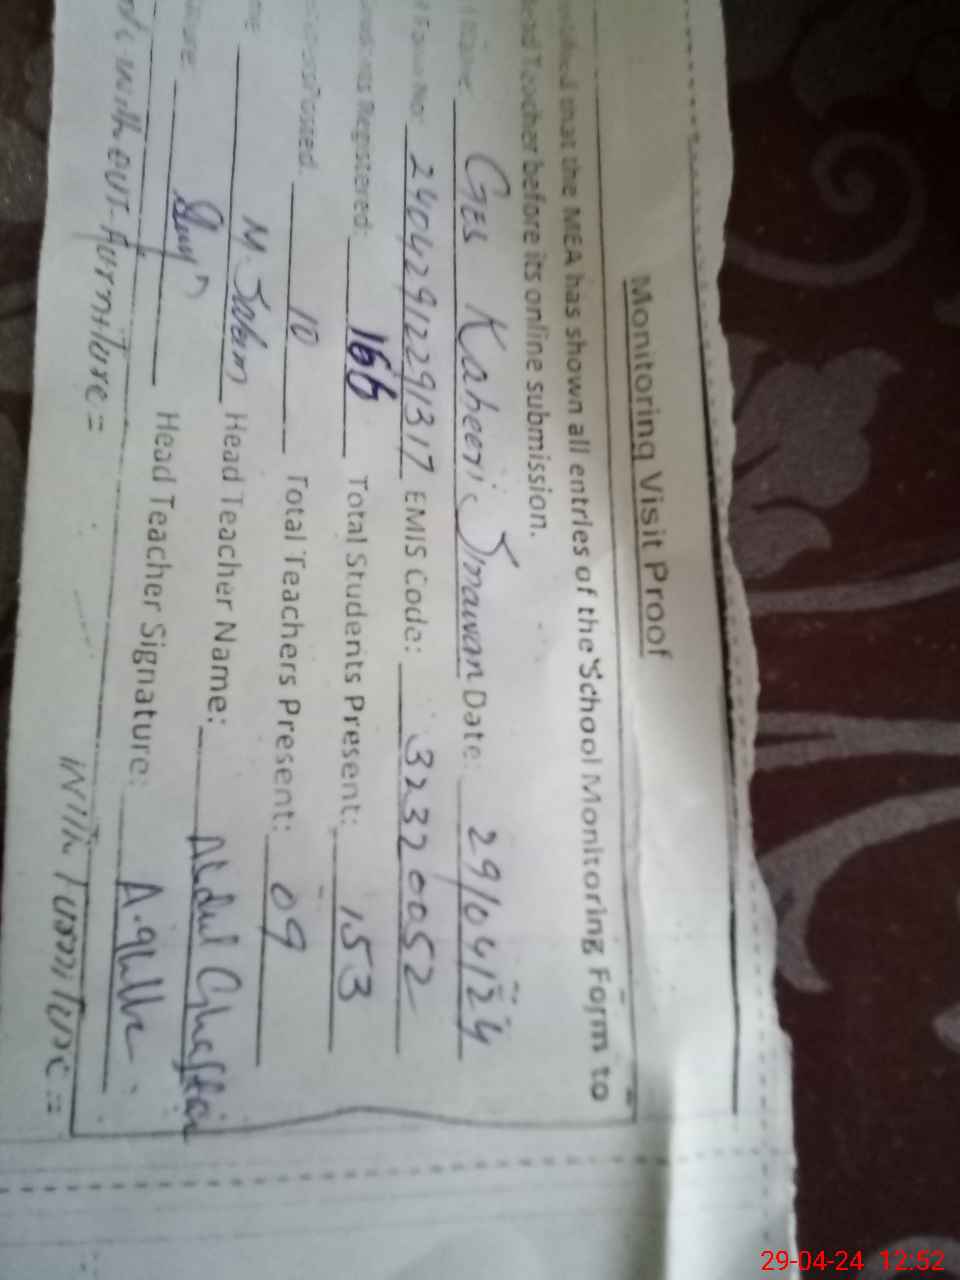 Monitoring Visit Proof
that the MEA has shown all entries of the School Monitoring Form to
Teacher before its online submission.
GES Kaheeri Smawan Date: 29/04/24
No: 24042912291317 EMIS Code: 32320052
Registered: 166 Total Students Present: 153
Posted: 10 Total Teachers Present: 09
M. Saleem Head Teacher Name: Abdul Ghaffar
Head Teacher Signature:
with out furniture = With Furniture =
29-04-24 12:52